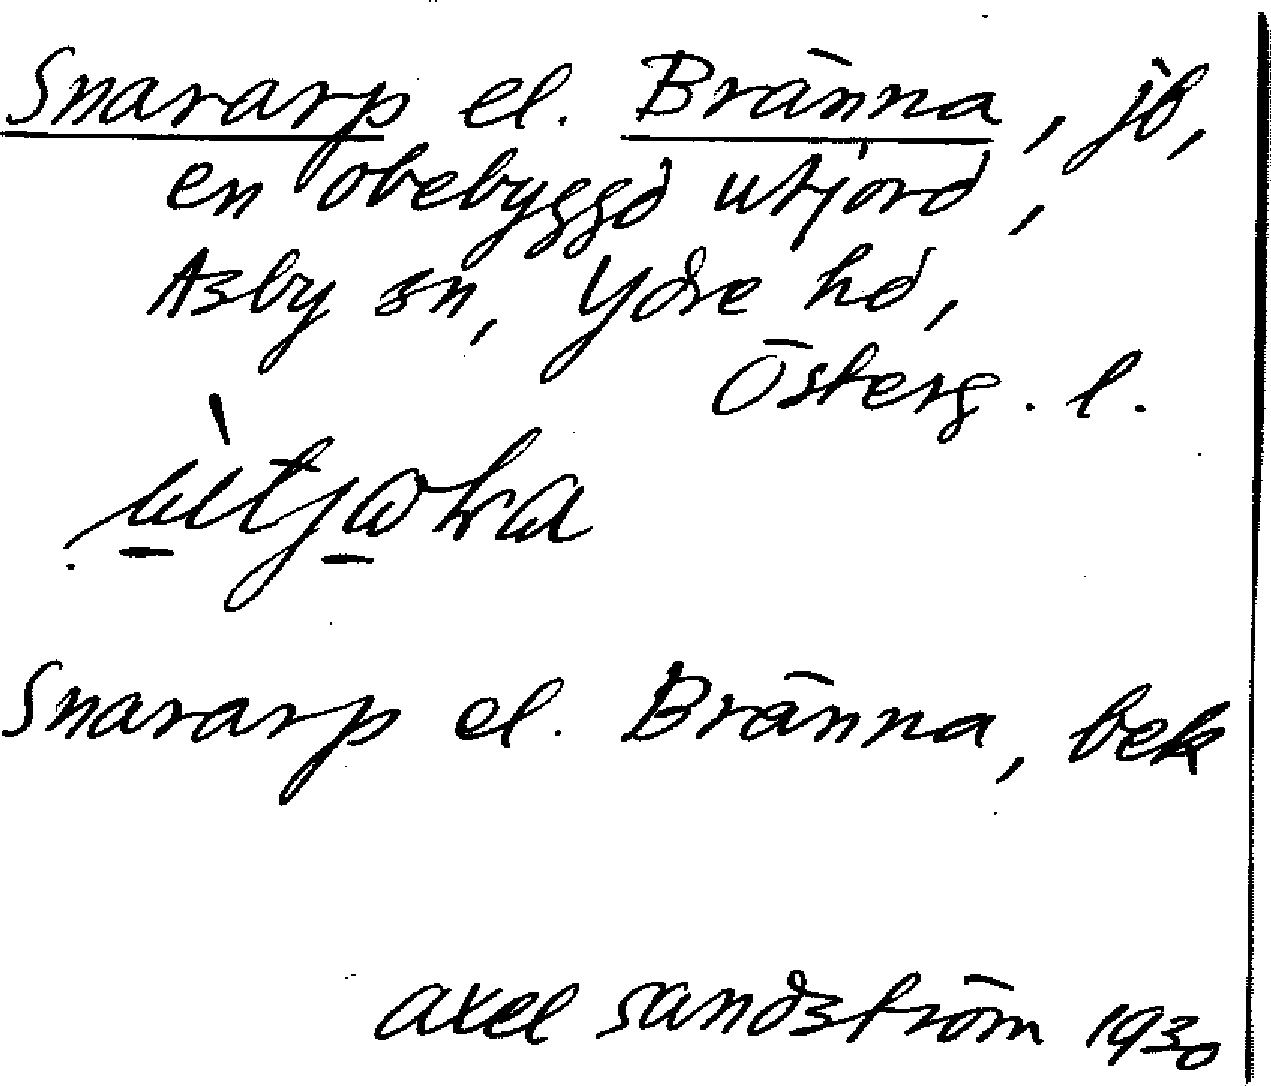 Snararp el. Bränna, jb,
en obebyggd utjord,
Asby sn, Ydre hd,
Österg. l.
Snararp el. Bränna, bek
axel sandström 1930